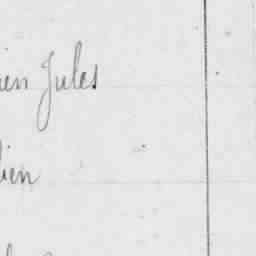 ien Jules
lien